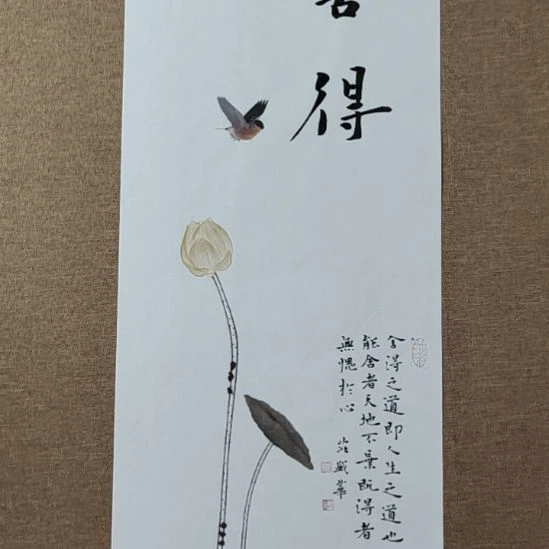 舍得
舍得之道即人生之道也
能舍者天地不棄既得者
無愧於心